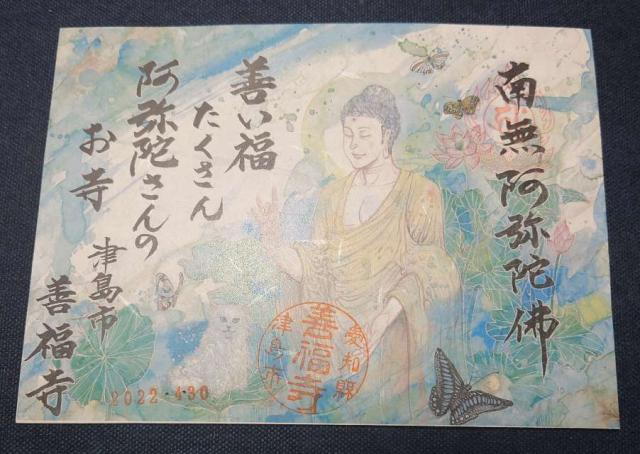 南無阿弥陀佛
善い福
たくさん
阿弥陀さんの
お寺
津島市
善福寺
愛知県
善福寺
津島市
2022.4.30